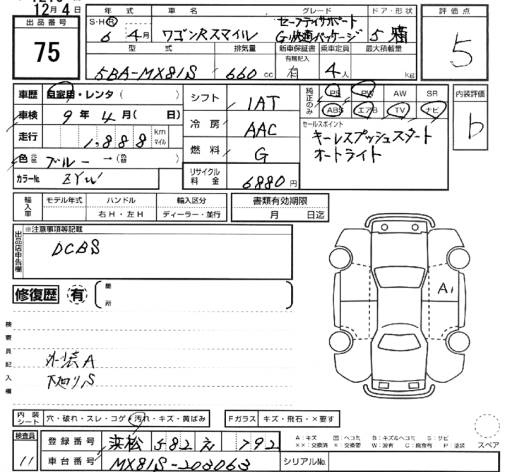 12月4日
出品番号
75
年式 車名 グレード ドア・形状 評価点
S・H・R 6年4月 ワゴンRスマイル セーフティサポート
G 快適パッケージ 5 5
型式 排気量 新車保証書 乗車定員 最大積載量
有期記入
5BA-MX81S 660cc 有 4人 kg
車歴 自家用・レンタ( )
車検 9年4月( 日)
走行 1,888 km マイル
色 元色 ブルー→(色替 )
カラーNo. ZYW
シフト IAT
冷房 AAC
燃料 G
リサイクル料金 6880円
純正のみ PS PW AW SR
ABS エアB TV ナビ
内装評価 b
セールスポイント
キーレスプッシュスタート
オートライト
輸入車 モデル年式 ハンドル 輸入区分
年 右H・左H ディーラー・並行
書類有効期限
月 日迄
出品店申告欄 ※注意事項等記載
DCBS
修復歴 有 箇所
A1
検査員記入欄
外装A
下廻りS
内装シート 穴・破れ・スレ・コゲ・汚れ・キズ・黄ばみ
Fガラス キズ・飛石・×要す
検査員 11
登録番号 浜松 582 え 792
車台番号 MX81S-203063
シリアルNo.
A:キズ U:ヘコミ B:キズ&ヘコミ S:サビ
スペア